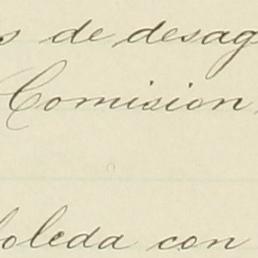 s de desag
Comision
oleda con